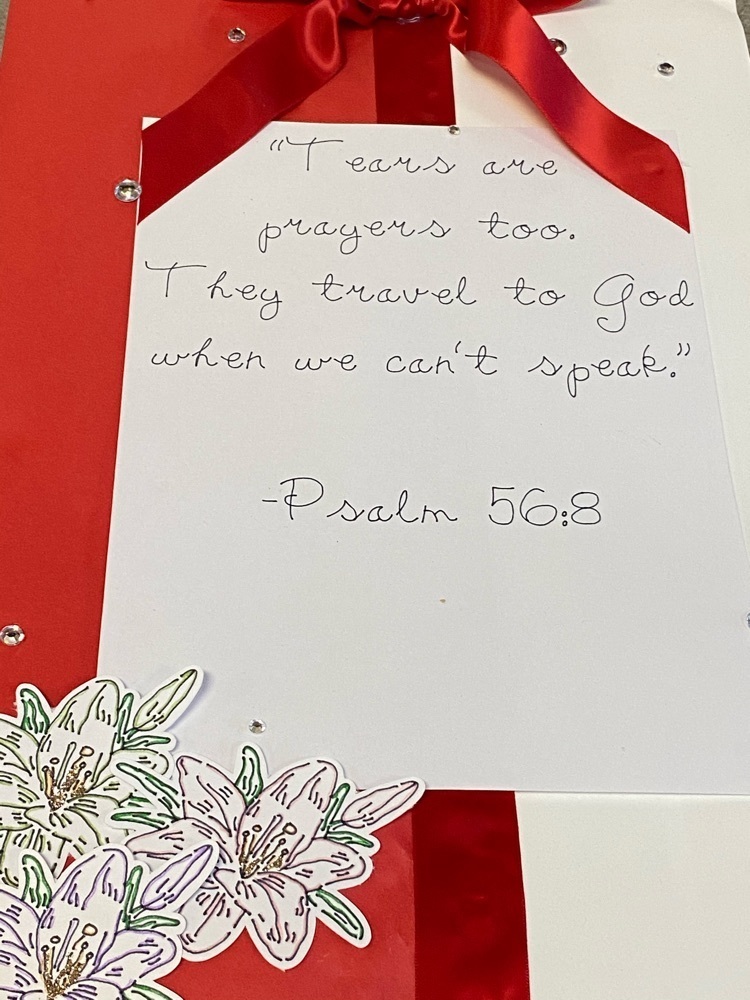 “Tears are
prayers too.
They travel to God
when we can't speak.”
-Psalm 56:8